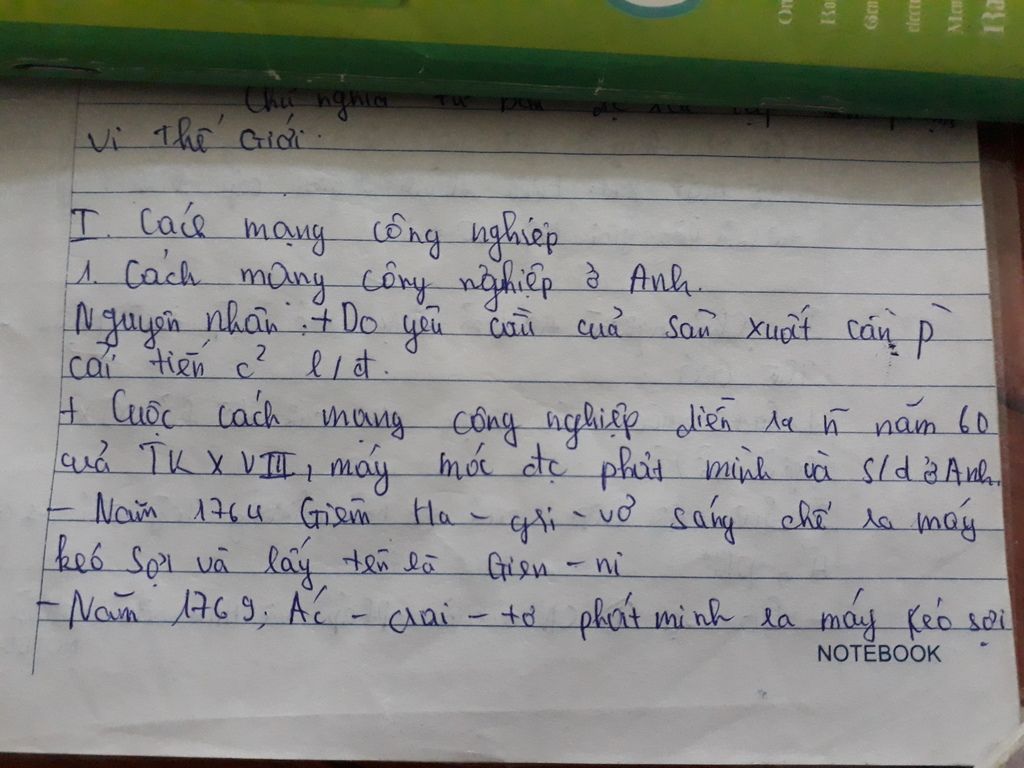 Chủ nghĩa tư bản
vi thế giới.
I. Cách mạng công nghiệp
1. Cách mạng công nghiệp ở Anh.
Nguyên nhân: + Do yêu cầu của sản xuất cần p
cải tiến c² l/đ.
+ Cuộc cách mạng công nghiệp diễn ra n̄ năm 60
của TK XVIII, máy móc đc phát minh và s/d ở Anh.
- Năm 1764 Giêm Ha - gri - vơ sáng chế ra máy
kéo sợi và lấy tên là Gien - ni
- Năm 1769, Ác - crai - tơ phát minh ra máy kéo sợi
NOTEBOOK